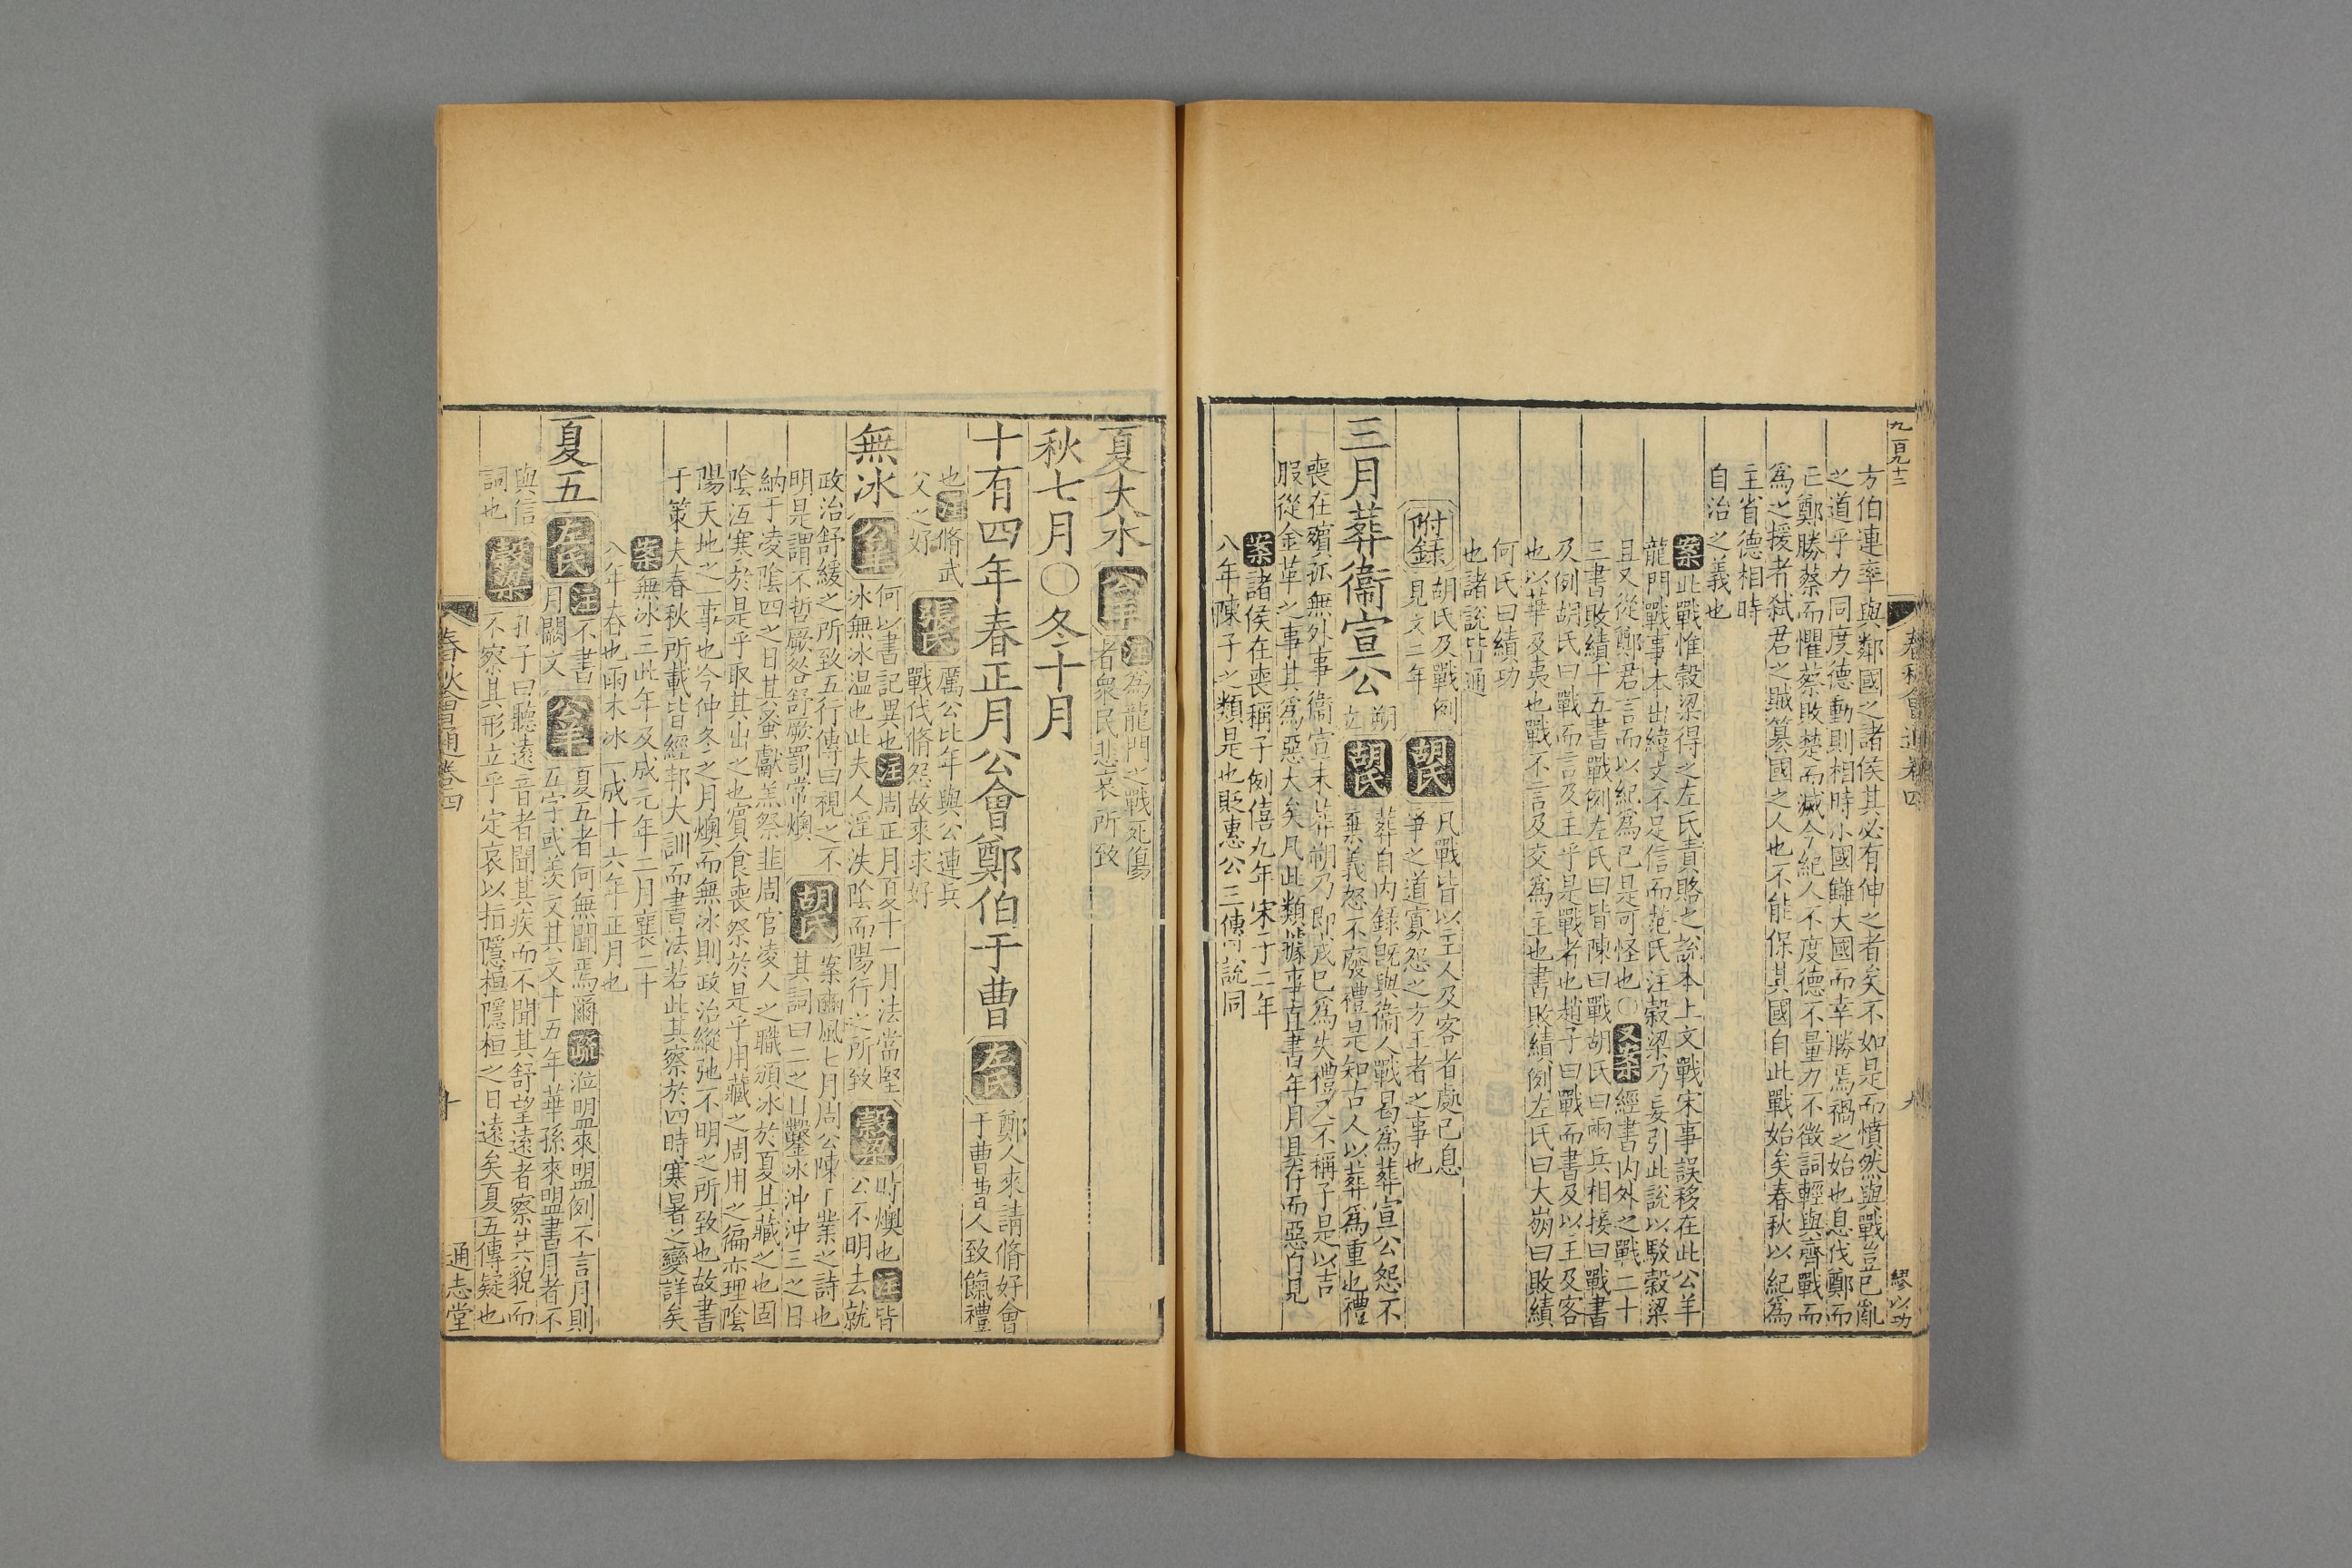 九百九十二
春秋會通卷四
九
繆以功
方伯連率與鄰國之諸侯其必有伸之者矣不如是而憤然與戰豈已亂
之道乎力同度德動則相時小國讎大國而幸勝焉禍之始也息伐鄭而
亡鄭勝蔡而懼蔡敗楚而滅今紀人不度德不量力不徵詞輕與齊戰而
爲之援者弑君之賊簒國之人也不能保其國自此戰始矣春秋以紀爲
主省德相時
自治之義也
案此戰惟穀梁得之左氏責賂之說本上文戰宋事誤移在此公羊
龍門戰事本出緯文不足信而范氏注穀梁乃妄引此說以駁穀梁
且又從鄭君言而以紀爲已是可怪也〇又案經書內外之戰二十
三書敗績十五書戰例左氏曰皆陳曰戰胡氏曰兩兵相接曰戰書
及例胡氏曰戰而言及主乎是戰者也趙子曰戰而書及以主及客
也以華及夷也戰不言及交爲主也書敗績例左氏曰大崩曰敗績
何氏曰績功
也諸說皆通
附錄胡氏及戰例見文二年胡氏凡戰皆以主人及客者處已息
爭之道寡怨之方王者之事也
三月葬衞宣公
胡氏葬自內錄既與衞人戰曷爲葬宣公怨不
棄義怒不廢禮是知古人以葬爲重也禮
喪在殯孤無外事衞宣未葬朔乃即戎已爲失禮又不稱子是以吉
服從金革之事其爲惡大矣凡此類據事直書年月具存而惡自見
案諸侯在喪稱子例僖九年宋子二年
八年陳子之類是也貶惠公三傳說同
夏大水公羊注爲龍門之戰死傷
者衆民悲哀所致
秋七月〇冬十月
十有四年春正月公會鄭伯于曹左氏鄭人來請脩好會
于曹曹人致餼禮
也注脩武
父之好
張氏厲公比年與公連兵
戰伐脩怨故來求好
無冰公羊何以書記異也注周正月夏十一月法當堅
冰無冰温也此夫人淫泆陰而陽行之所致穀梁時燠也注皆
公不明去就
政治舒緩之所致五行傳曰視之不
明是謂不哲厥咎舒厥罰常燠
胡氏案豳風七月周公陳王業之詩也
其詞曰二之日鑿冰沖沖三之日
納于凌陰四之日其蚤獻羔祭韭周官凌人之職頒冰於夏其藏之也固
陰沍寒於是乎取其出之也賓食喪祭於是乎用藏之周用之徧亦理陰
陽天地之一事也今仲冬之月燠而無冰則政治縱弛不明之所致也故書
于策夫春秋所載皆經邦大訓而書法若此其察於四時寒暑之變詳矣
案無冰三此年及成元年二月襄二十
八年春也雨木冰一成十六年正月也
夏五左氏注不書
月闕文
公羊夏五者何無聞焉爾疏涖盟來盟例不言月則
五字或羨文其文十五年華孫來盟書月者不
與信
詞也
穀梁孔子曰聽遠音者聞其疾而不聞其舒望遠者察其貌而
不察其形立乎定哀以指隱桓隱桓之日遠矣夏五傳疑也
春秋會通卷四
十
通志堂